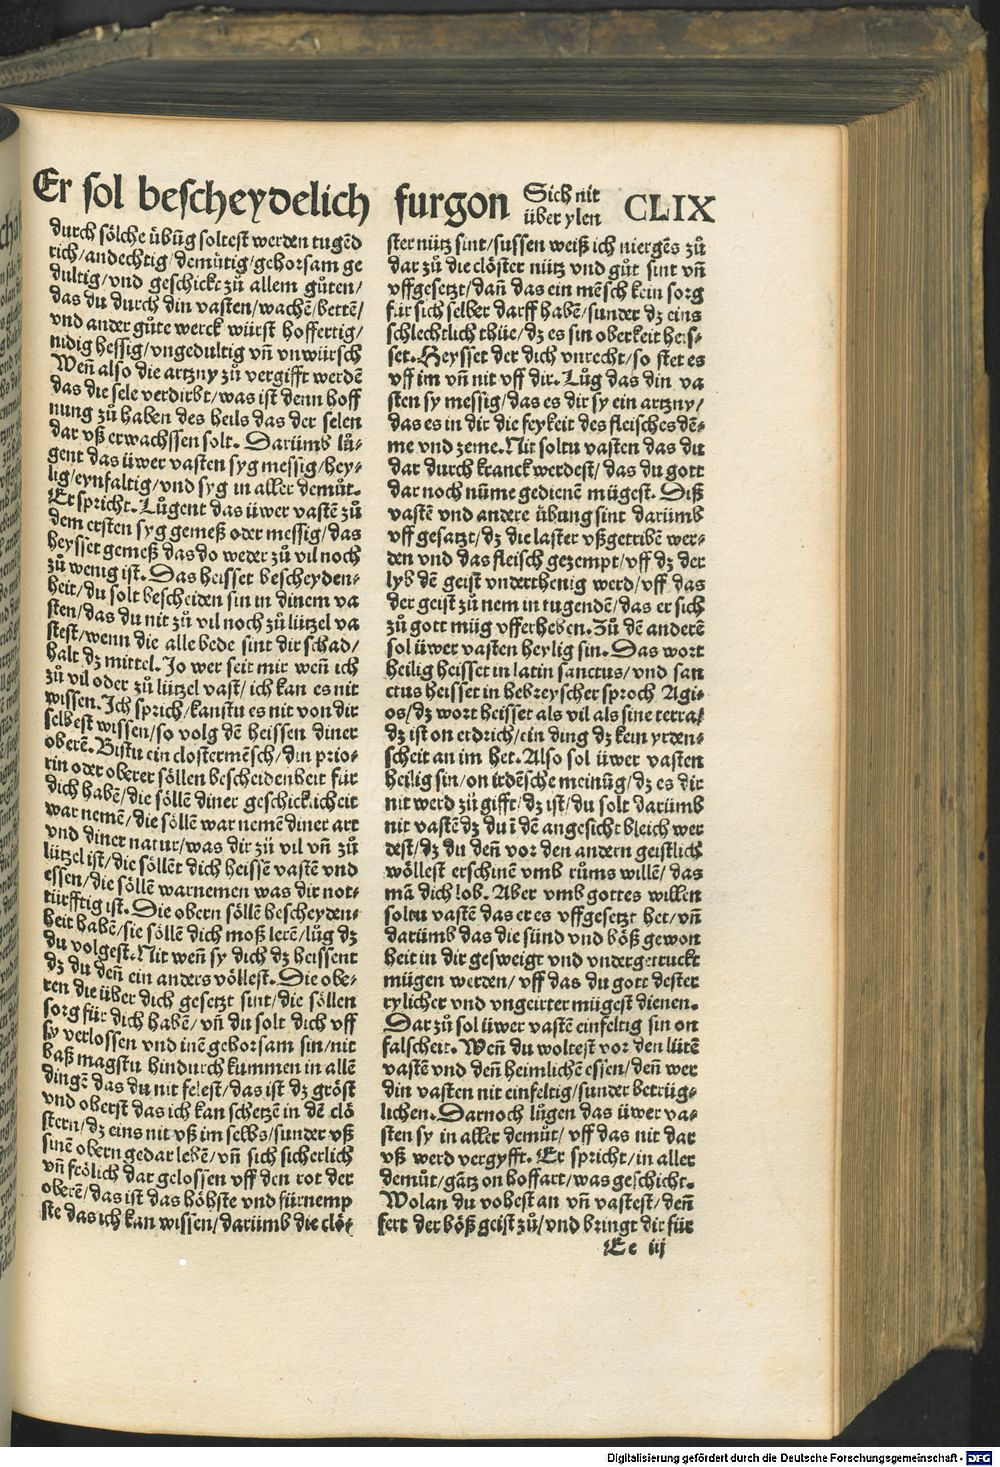 Er sol bescheydelich furgon Sich nit über ylen CLIX
durch sölche übūg soltest werden tugēd
rich/andechtig/demütig/gehorsam ge
dultig/vnd geschickt zů allem gůten/
das du durch din vasten/wachē/bettē/
vnd ander gůte werck würst hoffertig/
nidig hessig/vngedultig vn̄ vnwürsch
Wen̄ also die artzny zů vergifft werdē
das die sele verdirbt/was ist denn hoff
nung zů haben des heils das der selen
dar vß erwachssen solt. Darümb lů-
gent das üwer vasten syg messig/hey-
lig/eynfaltig/vnd syg in aller demůt.
Er spricht. Lůgent das üwer vastē zů
dem ersten syg gemeß oder messig/das
heysset gemeß das do weder zů vil noch
zů wenig ist. Das heisset bescheyden-
heit/du solt bescheiden sin in dinem va
sten/das du nit zů vil noch zů lützel va
stest/wenn die alle bede sint dir schad/
halt dz mittel. Jo wer seit mir wen̄ ich
zů vil oder zů lützel vast/ich kan es nit
wissen. Ich sprich/kanstu es nit von dir
selbest wissen/so volg dē heissen diner
oberē. Bistu ein clostermēsch/din prio-
rin oder oberer söllen bescheidenheit für
dich haben/die söllē diner geschicklicheit
war nemē/die söllē war nemē diner art
vnd diner natur/was dir zů vil vn̄ zů
lützel ist/die söllēt dich heissē vastē vnd
essen/die söllē warnemen was dir not-
türfftig ist. Die obern söllē bescheyden-
heit habē/sie söllē dich moß lerē/lůg dz
du volgest. Nit wen̄ sy dich dz heissent
dz du den̄ ein anders völlest. Die obe-
ren die über dich gesetzt sint/die söllen
sorg für dich habē/vn̄ du solt dich vff
sy verlossen vnd inē gehorsam sin/nit
baß magstu hindurch kummen in allē
dingē das du nit felest/das ist dz gröst
vnd oberst das ich kan schetzē in dē clö
stern/dz eins nit vß im selbs/sunder vß
sinē obern gedar lebē/vn̄ sich sicherlich
vn̄ frölich dar gelossen vff den rot der
oberē/das ist das höhste vnd fürnemp
ste das ich kan wissen/darümb die clö-
ster nütz sint/sussen weiß ich niergēs zů
dar zů die clöster nütz vnd gůt sint vn̄
vffgesetzt/dan̄ das ein mēsch kein sorg
für sich selber darff habē/sunder dz eins
schlechtlich thüe/dz es sin oberkeit heis-
set. Heysset der dich vnrecht/so stet es
vff im vn̄ nit vff dir. Lůg das din va
sten sy messig/das es dir sy ein artzny/
das es in dir die feykeit des fleisches dē-
me vnd zeme. Nit soltu vasten das du
dar durch kranck werdest/das du gott
dar noch nūme gedienē mügest. Diß
vastē vnd andere übung sint darümb
vff gesatzt/dz die laster vßgetribē wer-
den vnd das fleisch gezempt/vff dz der
lyb dē geist vnderthenig werd/vff das
der geist zů nem in tugendē/das er sich
zů gott müg vfferheben. Zů dē anderē
sol üwer vasten heylig sin. Das wort
heilig heisset in latin sanctus/vnd san
ctus heisset in hebreyscher sproch Agi-
os/dz wort heisset als vil als sine terra/
dz ist on erdrich/ein ding dz kein yrden-
scheit an im het. Also sol üwer vasten
heilig sin/on irdēsche meinūg/dz es dir
nit werd zů gifft/dz ist/du solt darümb
nit vastē dz du ī dē angesicht bleich wer
dest/dz du den̄ vor den andern geistlich
wöllest erschinē vmb růms willē/das
mā dich lob. Aber vmb gottes willen
soltu vastē das er es vffgesetzt het/vn̄
darümb das die sünd vnd böß gewon
heit in dir gesweigt vnd vndergetruckt
mügen werden/vff das du gott dester
rylicher vnd vngeirter mügest dienen.
Dar zů sol üwer vastē einfeltig sin on
falscheit. Wen̄ du woltest vor den lütē
vastē vnd den̄ heimlichē essen/den̄ wer
din vasten nit einfeltig/sunder betrüg-
lichen. Darnoch lůgen das üwer va-
sten sy in aller demůt/vff das nit dar
vß werd vergyfft. Er spricht/in aller
demůt/gātz on hoffart/was geschicht.
Wolan du vohest an vn̄ vastest/den̄
fert der böß geist zů/vnd bringt dir für
Ee iij
Digitalisierung gefördert durch die Deutsche Forschungsgemeinschaft - DFG